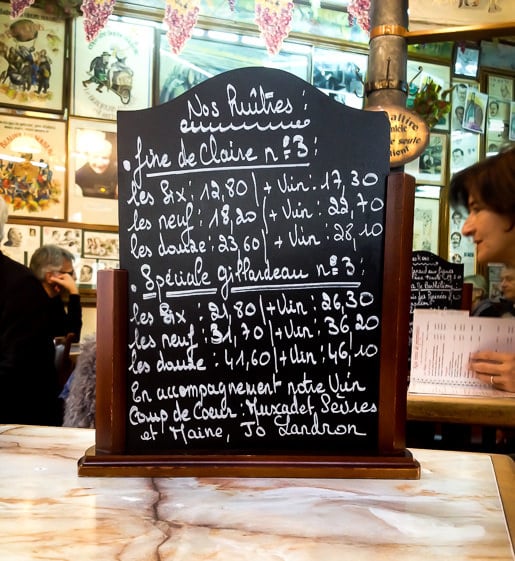 Nos Huîtres :
• fine de Claire n°3 :
les six : 12,80 / + Vin : 17,30
les neuf : 18,20 / + Vin : 22,70
les douze : 23,60 / + Vin : 28,10
• Spéciale gillardeau n°3 :
les six : 21,80 / + Vin : 26,30
les neuf : 31,70 / + Vin : 36,20
les douze : 41,60 / + Vin : 46,10
En accompagnement notre Vin
Coup de Coeur : Muzgdet Sèvres
et Maine, Jo Landron